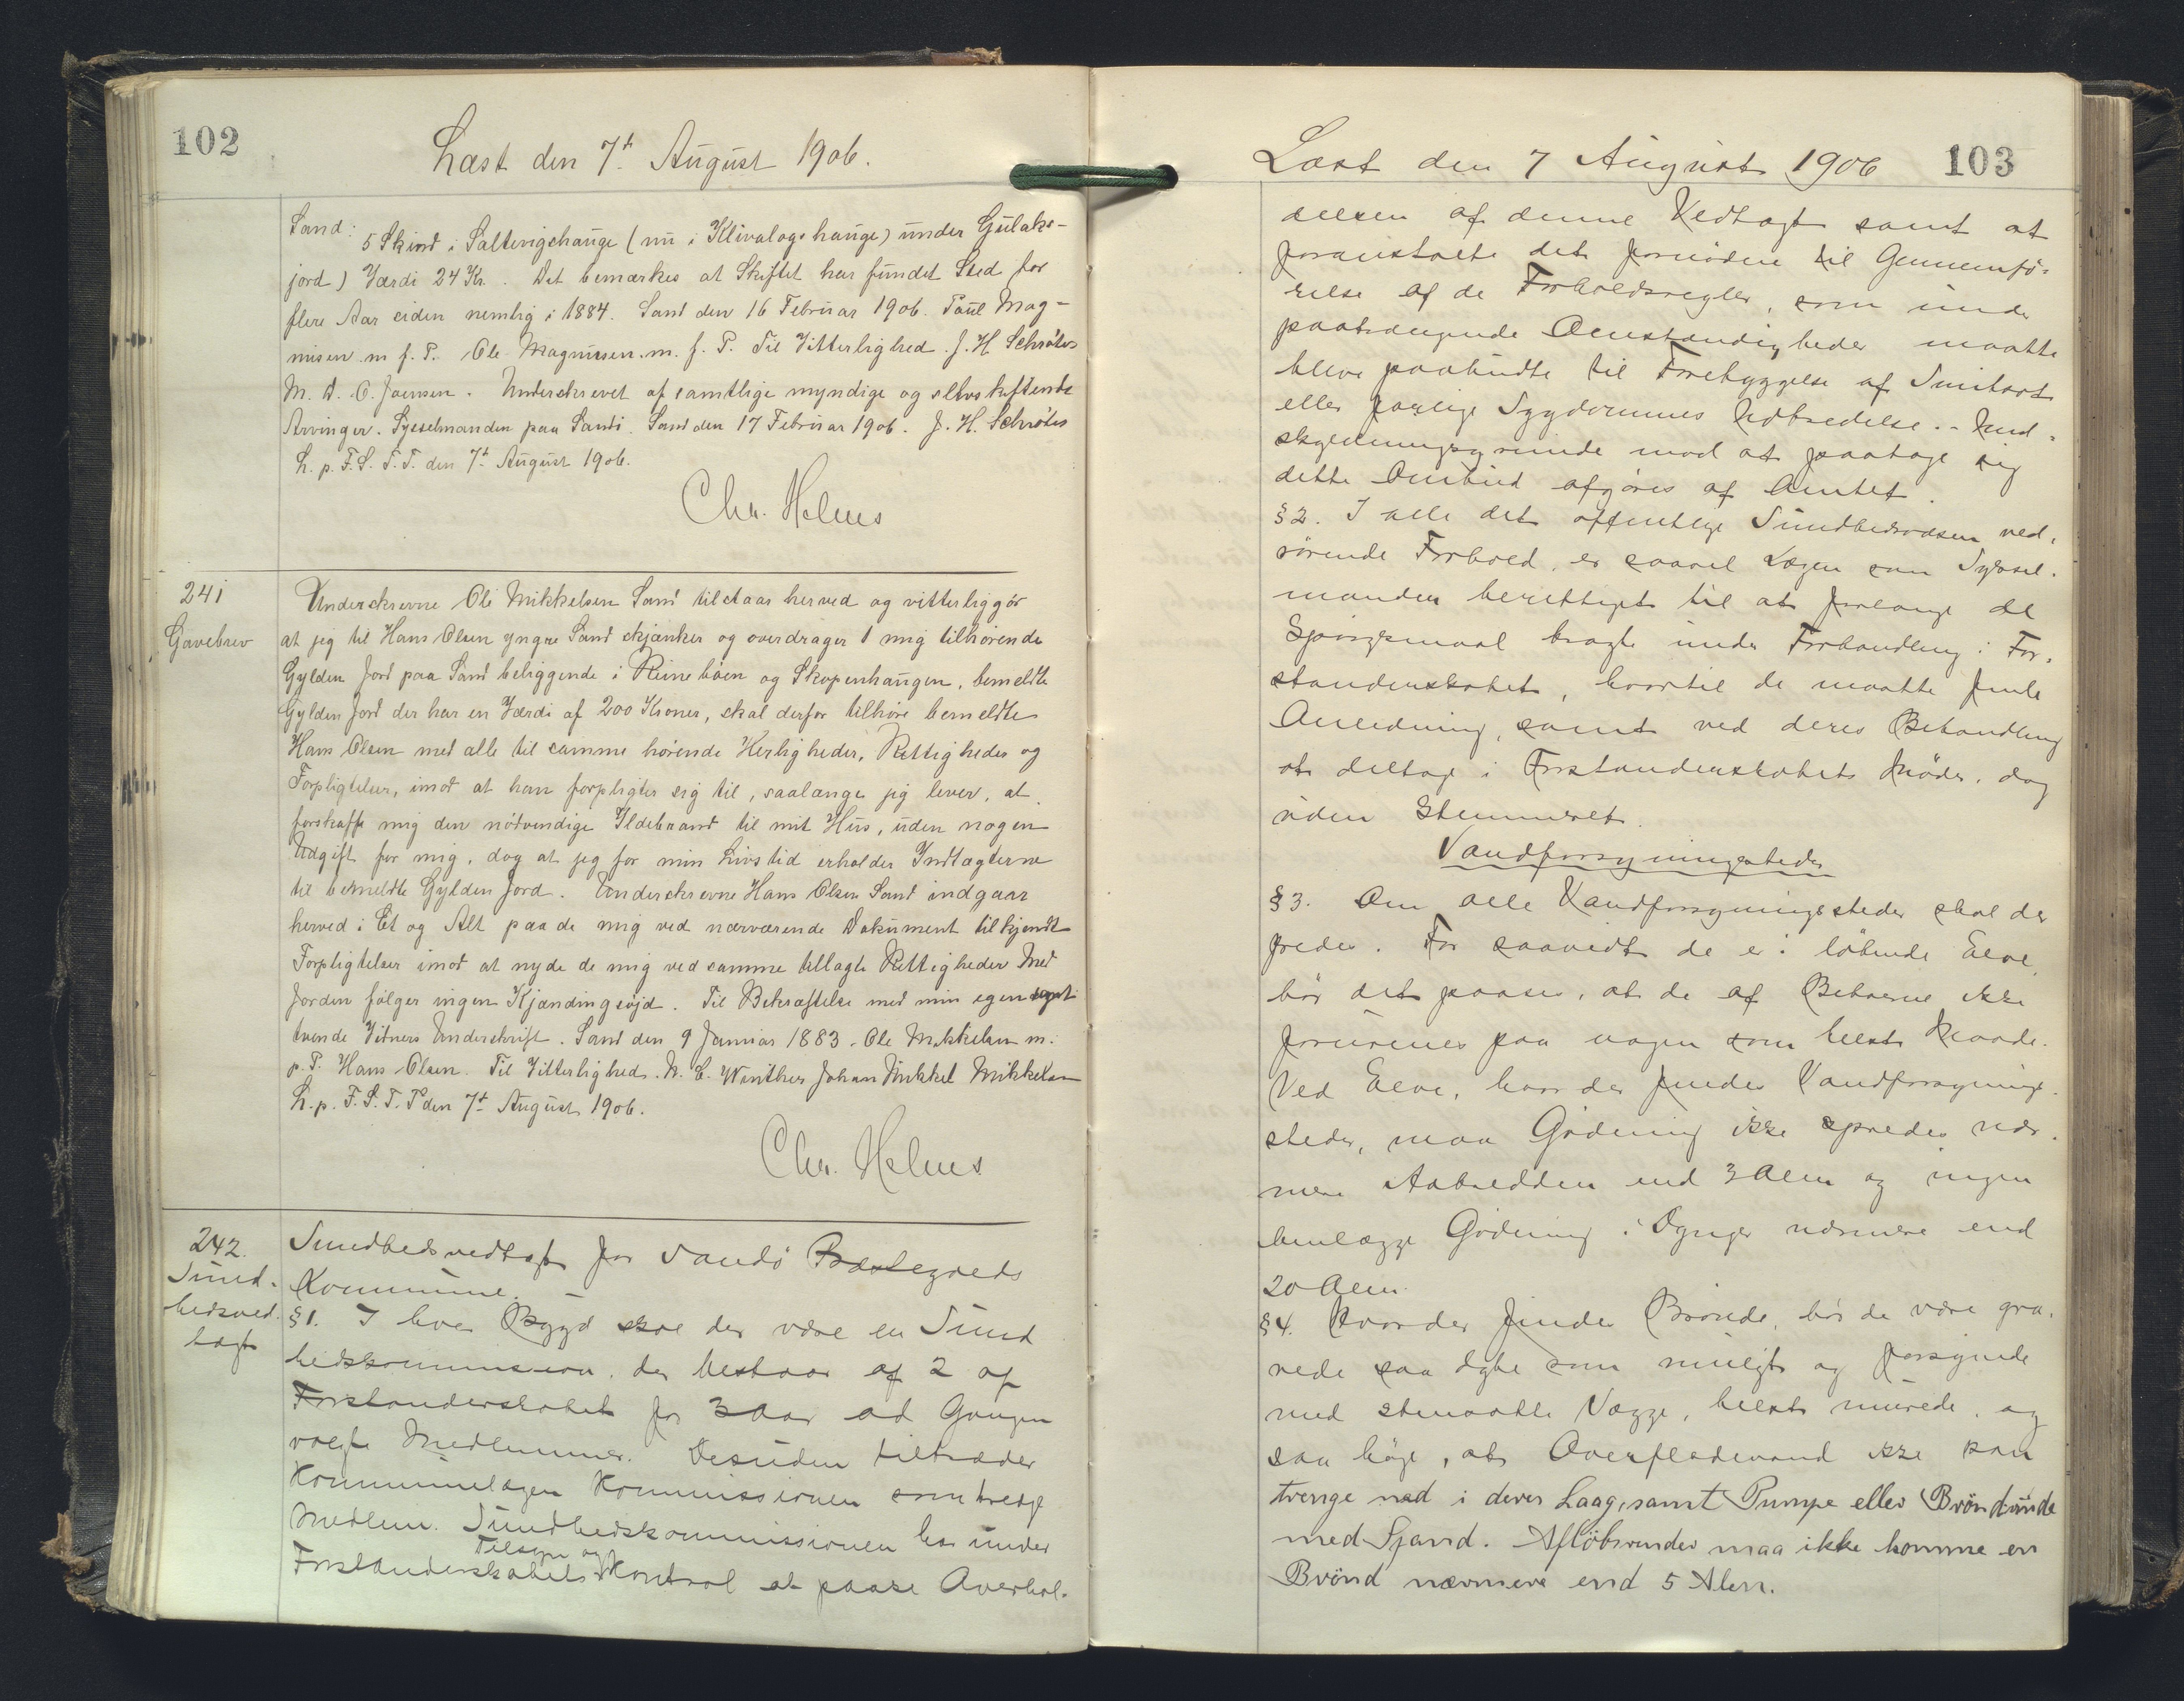 102
Læst den 7de August 1906.
Sand: 5 Skind i Saltvigshauge (nu i Klivalogshauge) under Gulaks-
jord) Værdi 24 Kr. Det bemærkes at Skiftet har fundet Sted for
flere Aar siden nemlig i 1884. Sand den 16 Februar 1906. Poul Mag-
nusen m. f. P. Ole Magnussen. m. f. P. Til Vitterlighed. J. H. Schrøter
M. A. C. Joensen. Underskrevet af samtlige myndige og selvskiftende
Arvinger. Sysselmanden paa Sandø. Sand den 17 Februar 1906. J. H. Schrøter
L. p. F. S. T. T. den 7de August 1906.
Chr. Helms
241
Gavebrev
Underskrevne Ole Mikkelsen Sand tilstaar herved og vitterliggør
at jeg til Hans Olsen yngre Sand skjænker og overdrager 1 mig tilhørende
Gylden Jord paa Sand beliggende i Reinebøen og Skopenhaugen, bemeldte
Gylden Jord der har en Værdi af 200 Kroner, skal derfor tilhøre bemeldte
Hans Olsen med alle til samme hørende Herligheder, Rettigheder og
Forpligtelser, imod at han forpligter sig til, saalænge jeg lever, at
forskaffe mig den nødvendige Ildebrand til mit Hus, uden nogen
Udgift for mig, dog at jeg for min Livstid erholder Indtægterne
til bemeldte Gylden Jord. Underskrevne Hans Olsen Sand indgaar
herved i Et og Alt paa de mig ved nærværende Dokument tilkjendte
Forpligtelser imod at nyde de mig ved samme tillagte Rettigheder Med
Jorden følger ingen Kjændingsøjd. Til Bekræftelse med min egen samt
tvende Vitners Underskrift. Sand den 9 Januar 1883. Ole Mikkelsen m.
p. P. Hans Olsen. Til Vitterlighed. N. C. Winther Johan Mikkel Mikkelsen
L. p. F. S. T. T. den 7de August 1906.
Chr. Helms
242.
Sund-
hedsved-
tægt
Sundhedsvedtægt for Sandø Præstegjelds
Kommune.
§1. I hver Bygd skal der være en Sund
hedskommission, der bestaar af 2 af
Forstanderskabet for 3 Aar ad Gangen
valgte Medlemmer. Desuden tiltræder
Kommunelægen Kommissionen som tredje
Medlem. Sundhedskommissionen har under
Tilsyn og
Forstanderskabets Kontrol at paase Overhol-
Læst den 7 August 1906
103
delsen af denne Vedtægt samt at
foranstalte det fornødne til Gennemfø-
relse af de Forholdsregler, som under
paatrængende Omstændigheder maatte
blive paabudte til Forebyggelse af Smitsots
eller farlige Sygdommes Udbredelse. - Und-
skyldningsgrunde mod at paatage sig
dette Ombud afgøres af Amtet.
§2. I alle det offentlige Sundhedsvæsen ved-
rørende Forhold, er saavel Lægen som Syssel-
manden berettiget til at forlange de
Spørgsmaal bragte under Forhandling i For-
standerskabet, hvortil de maatte finde
Anledning, samt ved deres Behandling
at deltage i Forstanderskabets Møder, dog
uden Stemmeret.
Vandforsyningssteder
§3. Om alle Vandforsyningssteder skal der
fredes. For saavidt de er i løbende Elve,
bør det paases, at de af Beboerne ikke
forurenes paa nogen som helst Maade.
Ved Elve, hvor der findes Vandforsynings-
steder, maa Gødning ikke spredes nær-
mere Aabredden end 3 Alen og ingen
henlægge Gødning i Dynger nærmere end
20 Alen.
§4. Hvor der findes Brønde, bør de være gra-
vede saa dybe som muligt og forsynede
med stensatte Vægge, helst murede, og
saa høje, at Overfladevand ikke kan
trænge ned i deres Laag, samt Pumpe eller Brøndvinde
med Spand. Afløbsrender maa ikke komme en
Brønd nærmere end 5 Alen.